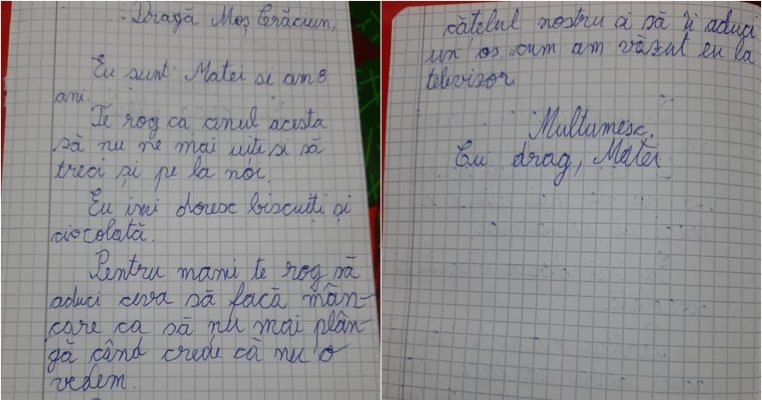 Dragă Moș Crăciun,
Eu sunt Matei si am 8
ani.
Te rog ca anul acesta
să nu ne mai uiti si să
treci și pe la noi.
Eu imi doresc biscuiți și
ciocolată.
Pentru mami te rog să
aduci ceva să facă mân-
care ca să nu mai plân-
gă când crede că nu o
vedem.
cățelul nostru ai să îi aduci
un os cum am văzut eu la
televizor
Multumesc.
Cu drag, Matei